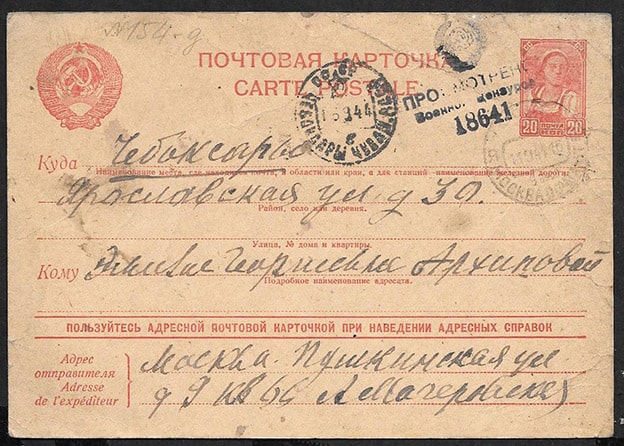 №154-д
ПОЧТОВАЯ КАРТОЧКА
CARTE POSTALE
ПРОСМОТРЕНО
Военной Цензурой
18641
ЧЕБОКСАРЫ ЧУВАШ
44
20 20
МОСКВА
Куда Чебоксары
Наименование места, где находится почта, а области или края, а для станций наименование железной дороги:
Ярославская ул д 30.
Район, село или деревня.
Улица, № дома и квартиры.
Кому Георгиевне Архиповой
Подробное наименование адресата.
ПОЛЬЗУЙТЕСЬ АДРЕСНОЙ ПОЧТОВОЙ КАРТОЧКОЙ ПРИ НАВЕДЕНИИ АДРЕСНЫХ СПРАВОК
Адрес
отправителя
Adresse
de l'expéditeur
Москва. Пушкинская ул
д 9 кв 60